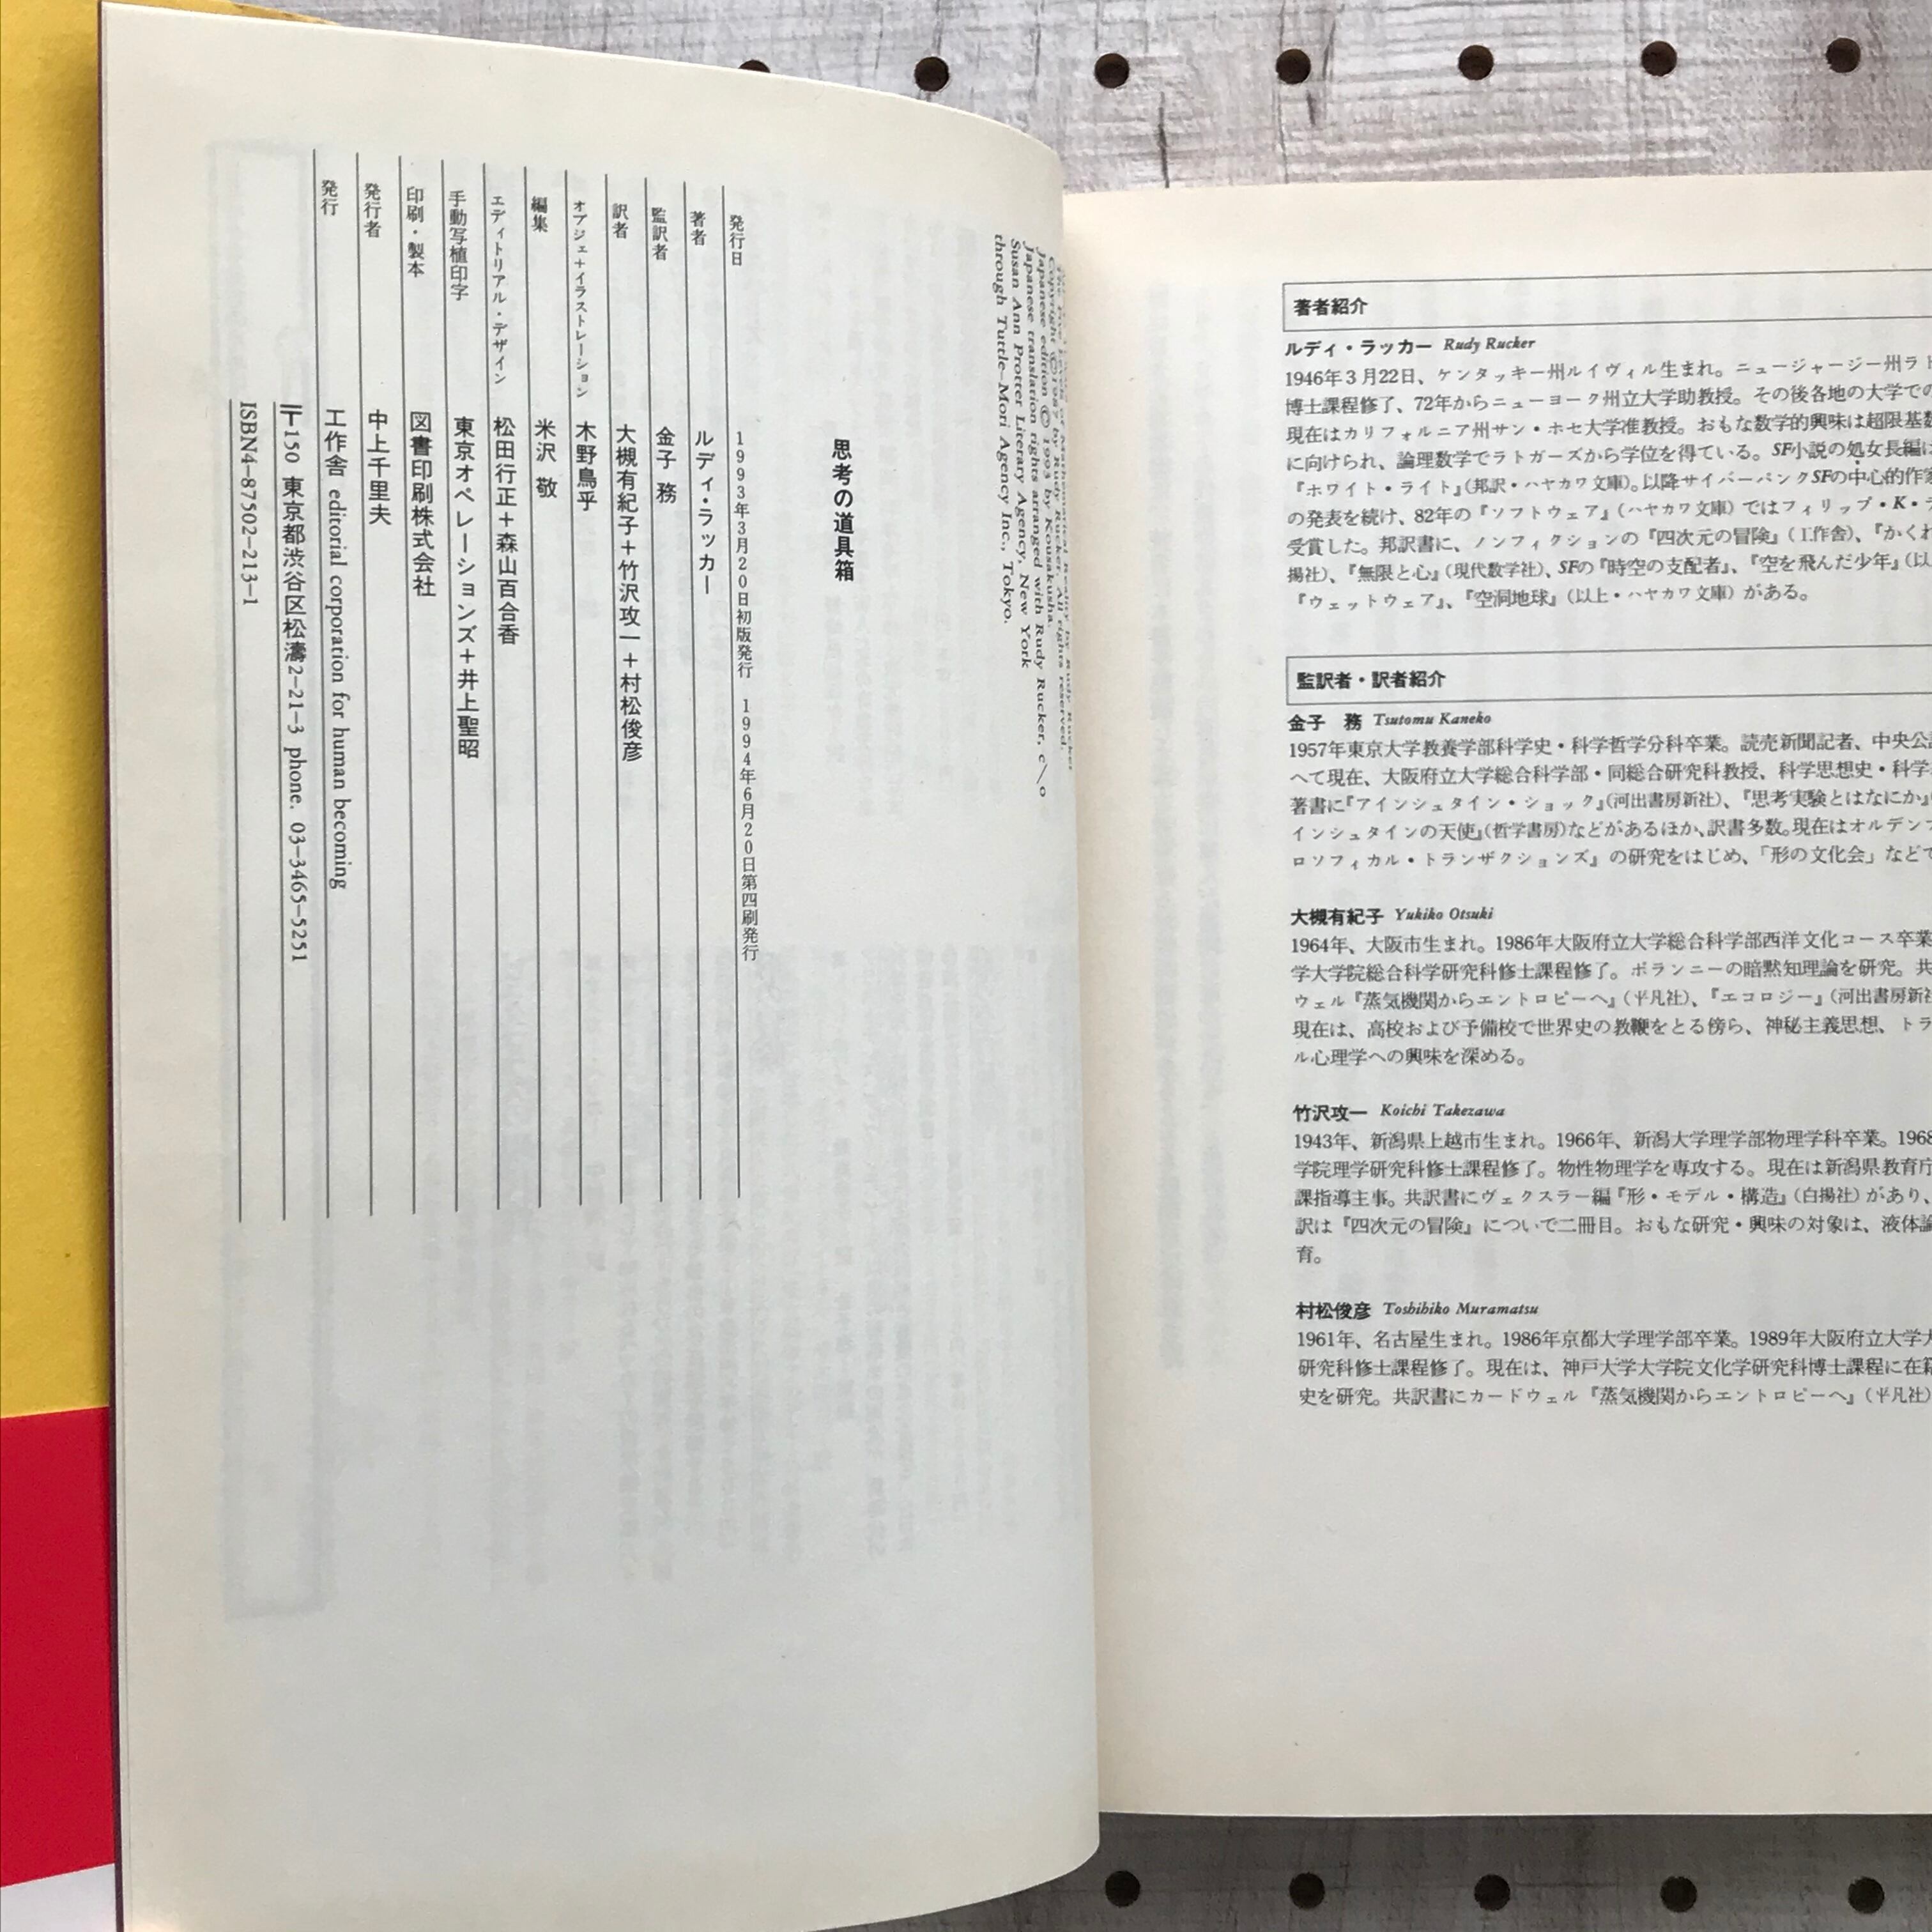 著者紹介
ルディ・ラッカー Rudy Rucker
1946年3月22日、ケンタッキー州ルイヴィル生まれ。ニュージャージー州ラト
博士課程修了、72年からニューヨーク州立大学助教授。その後各地の大学での
現在はカリフォルニア州サン・ホセ大学准教授。おもな数学的興味は超限基数
に向けられ、論理数学でラトガーズから学位を得ている。SF小説の処女長編は
『ホワイト・ライト』(邦訳・ハヤカワ文庫)。以降サイバーパンクSFの中心的作家
の発表を続け、82年の『ソフトウェア』(ハヤカワ文庫)ではフィリップ・K・デ
受賞した。邦訳書に、ノンフィクションの『四次元の冒険』(工作舎)、『かくれ
揚社)、『無限と心』(現代数学社)、SFの『時空の支配者』、『空を飛んだ少年』(以
『ウェットウェア』、『空洞地球』(以上・ハヤカワ文庫)がある。
監訳者・訳者紹介
金子 務 Tsutomu Kaneko
1957年東京大学教養学部科学史・科学哲学分科卒業。読売新聞記者、中央公論
へて現在、大阪府立大学総合科学部・同総合研究科教授、科学思想史・科学
著書に『アインシュタイン・ショック』(河出書房新社)、『思考実験とはなにか』
インシュタインの天使』(哲学書房)などがあるほか、訳書多数。現在はオルデン
ロソフィカル・トランザクションズ』の研究をはじめ、「形の文化会」などで
大槻有紀子 Yukiko Otsuki
1964年、大阪市生まれ。1986年大阪府立大学総合科学部西洋文化コース卒業
学大学院総合科学研究科修士課程修了。ポランニーの暗黙知理論を研究。共
ウェル『蒸気機関からエントロピーへ』(平凡社)、『エコロジー』(河出書房新社
現在は、高校および予備校で世界史の教鞭をとる傍ら、神秘主義思想、トラ
ル心理学への興味を深める。
竹沢攻一 Koichi Takezawa
1943年、新潟県上越市生まれ。1966年、新潟大学理学部物理学科卒業。1968
学院理学研究科修士課程修了。物性物理学を専攻する。現在は新潟県教育庁
課指導主事。共訳書にヴェクスラー編『形・モデル・構造』(白揚社)があり、
訳は『四次元の冒険』についで二冊目。おもな研究・興味の対象は、液体論
育。
村松俊彦 Toshihiko Muramatsu
1961年、名古屋生まれ。1986年京都大学理学部卒業。1989年大阪府立大学大
研究科修士課程修了。現在は、神戸大学大学院文化学研究科博士課程に在籍
史を研究。共訳書にカードウェル『蒸気機関からエントロピーへ』(平凡社)
Copyright ©1987 by Rudy Rucker. All rights reserved.
Japanese edition © 1993 by Kousakusha.
Japanese translation rights arranged with Rudy Rucker, c/o
Susan Ann Protter Literary Agency, New York
through Tuttle-Mori Agency Inc., Tokyo.
思考の道具箱
発行日 1993年3月20日初版発行 1994年6月20日第四刷発行
著者 ルディ・ラッカー
監訳者 金子 務
訳者 大槻有紀子+竹沢攻一+村松俊彦
オブジェ+イラストレーション 木野鳥乎
編集 米沢 敬
エディトリアル・デザイン 松田行正+森山百合香
手動写植印字 東京オペレーションズ+井上聖昭
印刷・製本 図書印刷株式会社
発行者 中上千里夫
発行 工作舎 editorial corporation for human becoming
〒150 東京都渋谷区松濤2-21-3 phone. 03-3465-5251
ISBN4-87502-213-1